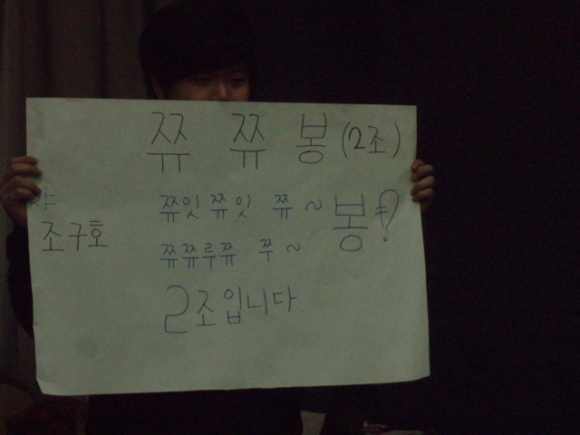 쮸 쮸 봉 (2조)
쮸잇 쮸잇 쮸 ~ 봉!
# 조구호
쮸쮸루쮸 쭈 ~
2조입니다